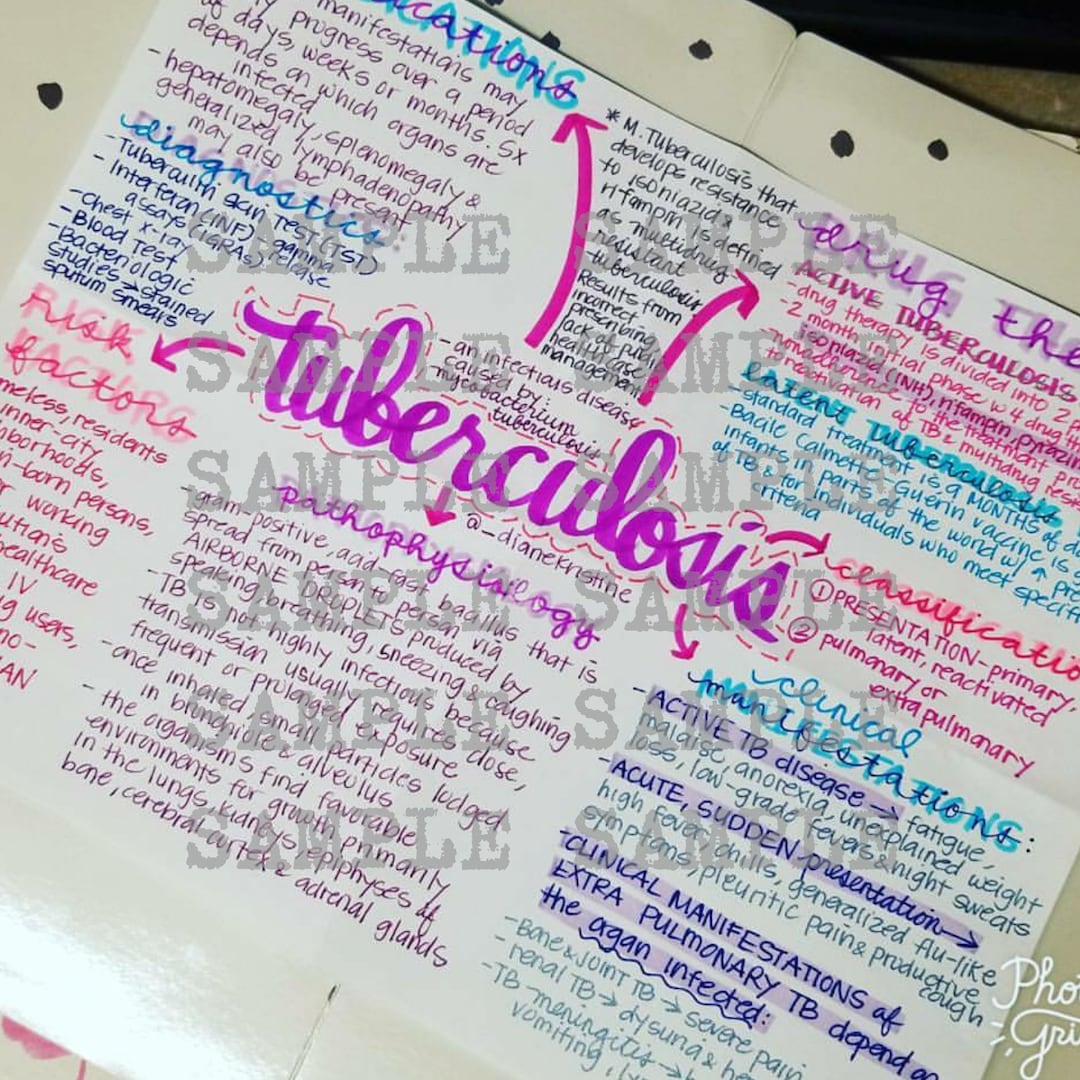 manifestations may
progress over a period
of days, weeks or months. Sx
depends on which organs are
infected
- hepatomegaly, splenomegaly &
generalized lymphadenopathy
may also be present
diagnostics:
- Tuberculin skin test (TST)
- Interferon (INF) gamma release
assays (IGRAs)
- Chest x-ray
- Blood Test
- Bacteriologic
studies → stained
sputum smears
RISK
factors
residents
inner-city
persons,
working
healthcare
IV
users,
* M. Tuberculosis that
develops resistance
to isoniazid &
rifampin is defined
as multidrug-
resistant
tuberculosis
Results from
incorrect
prescribing
lack of public
healthcase
management
tuberculosis
- an infectious disease
caused by:
mycobacterium
tuberculosis
@-dianekristine
drug
ACTIVE TUBERCULOSIS
- drug therapy is divided into 2
- 2 month initial phase w 4 drug
isoniazid (INH), rifampin,
- nonadherence to the treatment
reactivation of TB & multidrug
latent Tuberculosis
- standard treatment is 9 MONTHS of
- Bacile Calmette-Guerin vaccine is
infants in parts of the world w/ ↑
of TB & for individuals who meet
criteria
① PRESENTATION - primary,
latent, reactivated
② pulmonary or
extrapulmonary
pathophysiology
- gram positive, acid-fast bacillus that is
spread from person to person via
AIRBORNE DROPLETS produced by
speaking, breathing, sneezing & coughing
- TB is not highly infectious because
transmission usually requires close,
frequent or prolonged exposure
- once inhaled small particles lodged
in bronchiole & alveolus
- the organisms find favorable
environments for growth primarily
in the lungs, kidneys, epiphyses of
bone, cerebral cortex & adrenal glands
clinical
MANIFESTATIONS:
- ACTIVE TB disease → fatigue,
malaise, anorexia, unexplained weight
loss, low-grade fevers & night sweats
- ACUTE, SUDDEN presentation →
high fever, chills, generalized flu-like
symptoms, pleuritic pain & productive
cough
- CLINICAL MANIFESTATIONS of
EXTRA PULMONARY TB depend on
the organ infected:
- Bone & JOINT TB → severe pain
- renal TB → dysuria &
- TB meningitis →
vomiting,
SAMPLE SAMPLE
SAMPLE SAMPLE
SAMPLE SAMPLE
SAMPLE SAMPLE
SAMPLE SAMPLE
SAMPLE SAMPLE